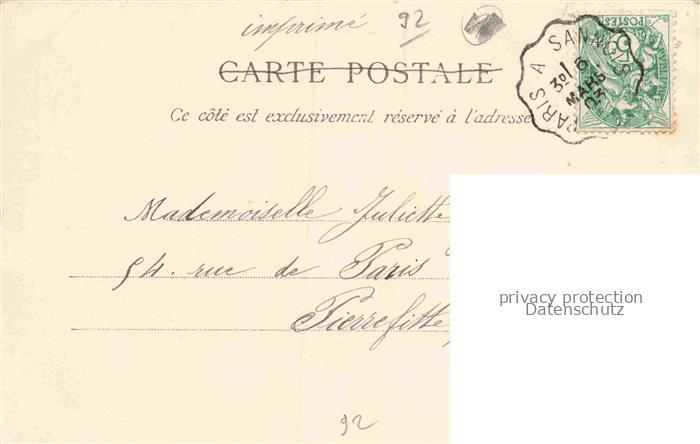 imprimé 92
CARTE POSTALE
Ce côté est exclusivement réservé à l'adresse
PARIS A SANNOIS
30 / 6
MARS
03
5
POSTES
Mademoiselle Juliette
54. rue de Paris
Pierrefitte
privacy protection
Datenschutz
92